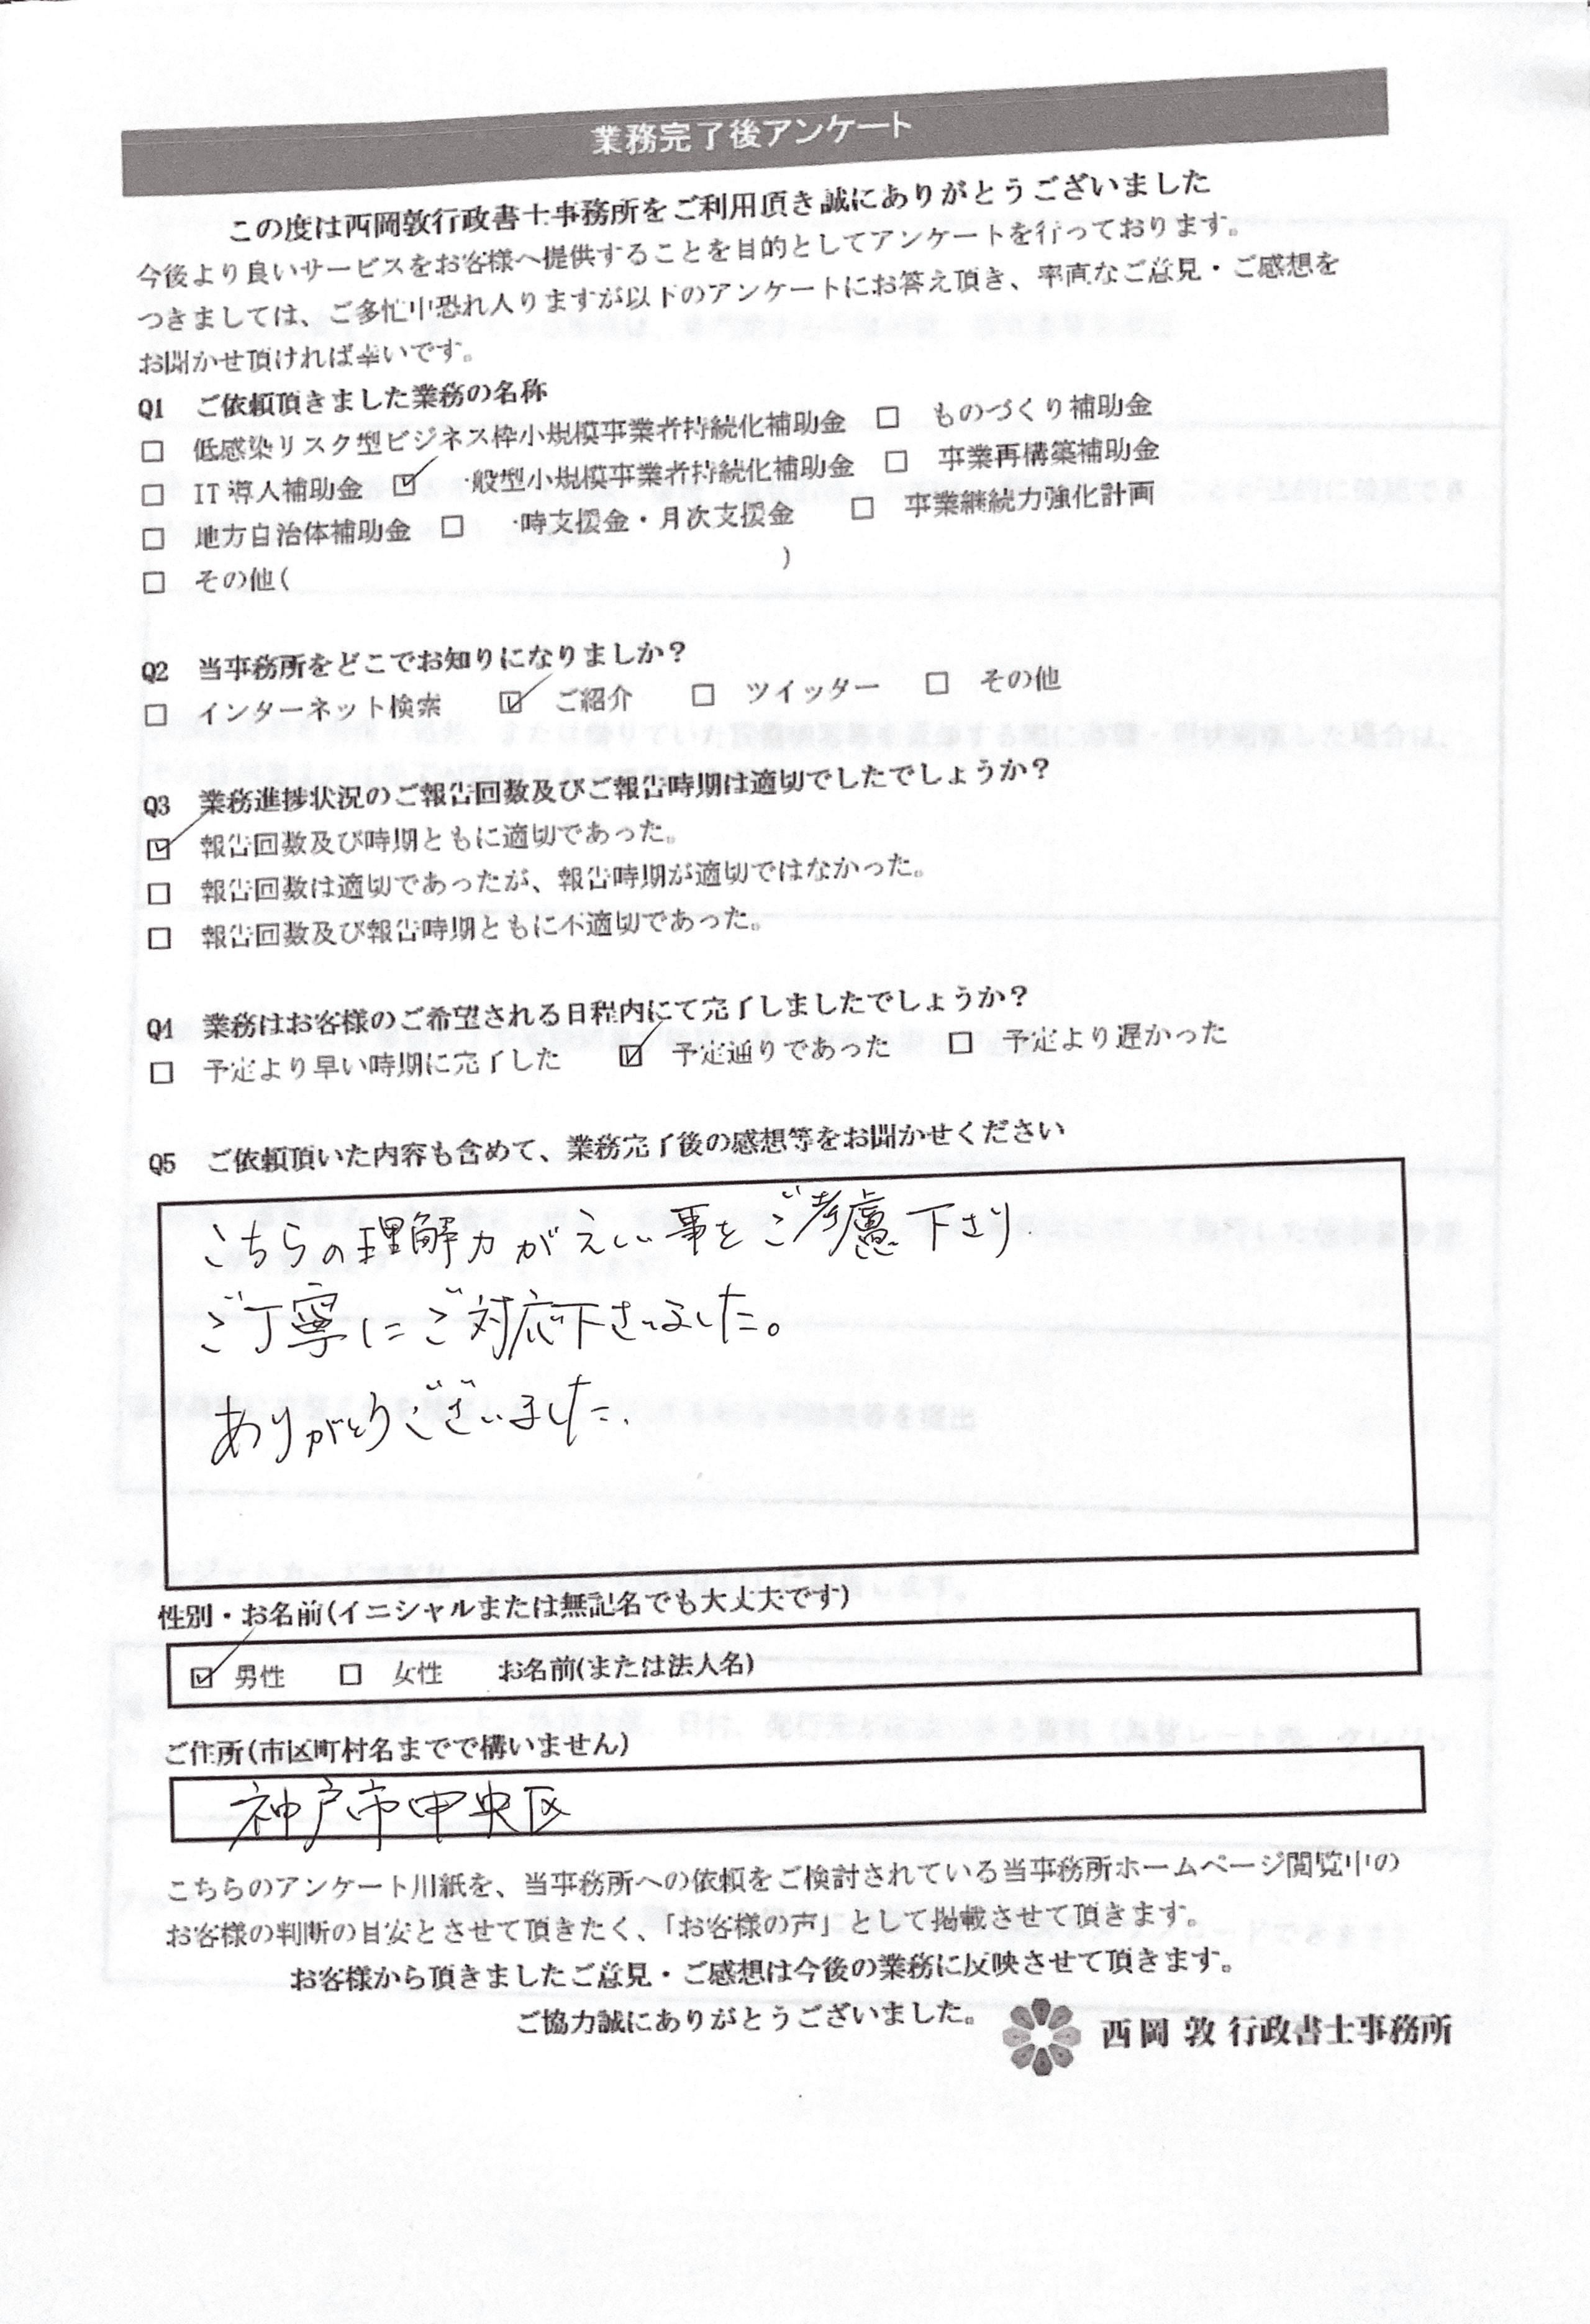 業務完了後アンケート
この度は西岡敦行政書士事務所をご利用頂き誠にありがとうございました
今後より良いサービスをお客様へ提供することを目的としてアンケートを行っております。
つきましては、ご多忙中恐れ入りますが以下のアンケートにお答え頂き、率直なご意見・ご感想を
お聞かせ頂ければ幸いです。
Q1 ご依頼頂きました業務の名称
□ 低感染リスク型ビジネス枠小規模事業者持続化補助金 □ ものづくり補助金
□ IT導入補助金 ☑ 一般型小規模事業者持続化補助金 □ 事業再構築補助金
□ 地方自治体補助金 □ 一時支援金・月次支援金 □ 事業継続力強化計画
□ その他( )
Q2 当事務所をどこでお知りになりましか？
□ インターネット検索 ☑ ご紹介 □ ツイッター □ その他
Q3 業務進捗状況のご報告回数及びご報告時期は適切でしたでしょうか？
☑ 報告回数及び時期ともに適切であった。
□ 報告回数は適切であったが、報告時期が適切ではなかった。
□ 報告回数及び報告時期ともに不適切であった。
Q4 業務はお客様のご希望される日程内にて完了しましたでしょうか？
□ 予定より早い時期に完了した ☑ 予定通りであった □ 予定より遅かった
Q5 ご依頼頂いた内容も含めて、業務完了後の感想等をお聞かせください
こちらの理解力が 事をご考慮下さり
ご丁寧にご対応下さいました。
ありがとうございました.
性別・お名前(イニシャルまたは無記名でも大丈夫です)
☑ 男性 □ 女性 お名前(または法人名)
ご住所(市区町村名までで構いません)
神戸市中央区
こちらのアンケート用紙を、当事務所への依頼をご検討されている当事務所ホームページ閲覧中の
お客様の判断の目安とさせて頂きたく、「お客様の声」として掲載させて頂きます。
お客様から頂きましたご意見・ご感想は今後の業務に反映させて頂きます。
ご協力誠にありがとうございました。
西岡 敦 行政書士事務所